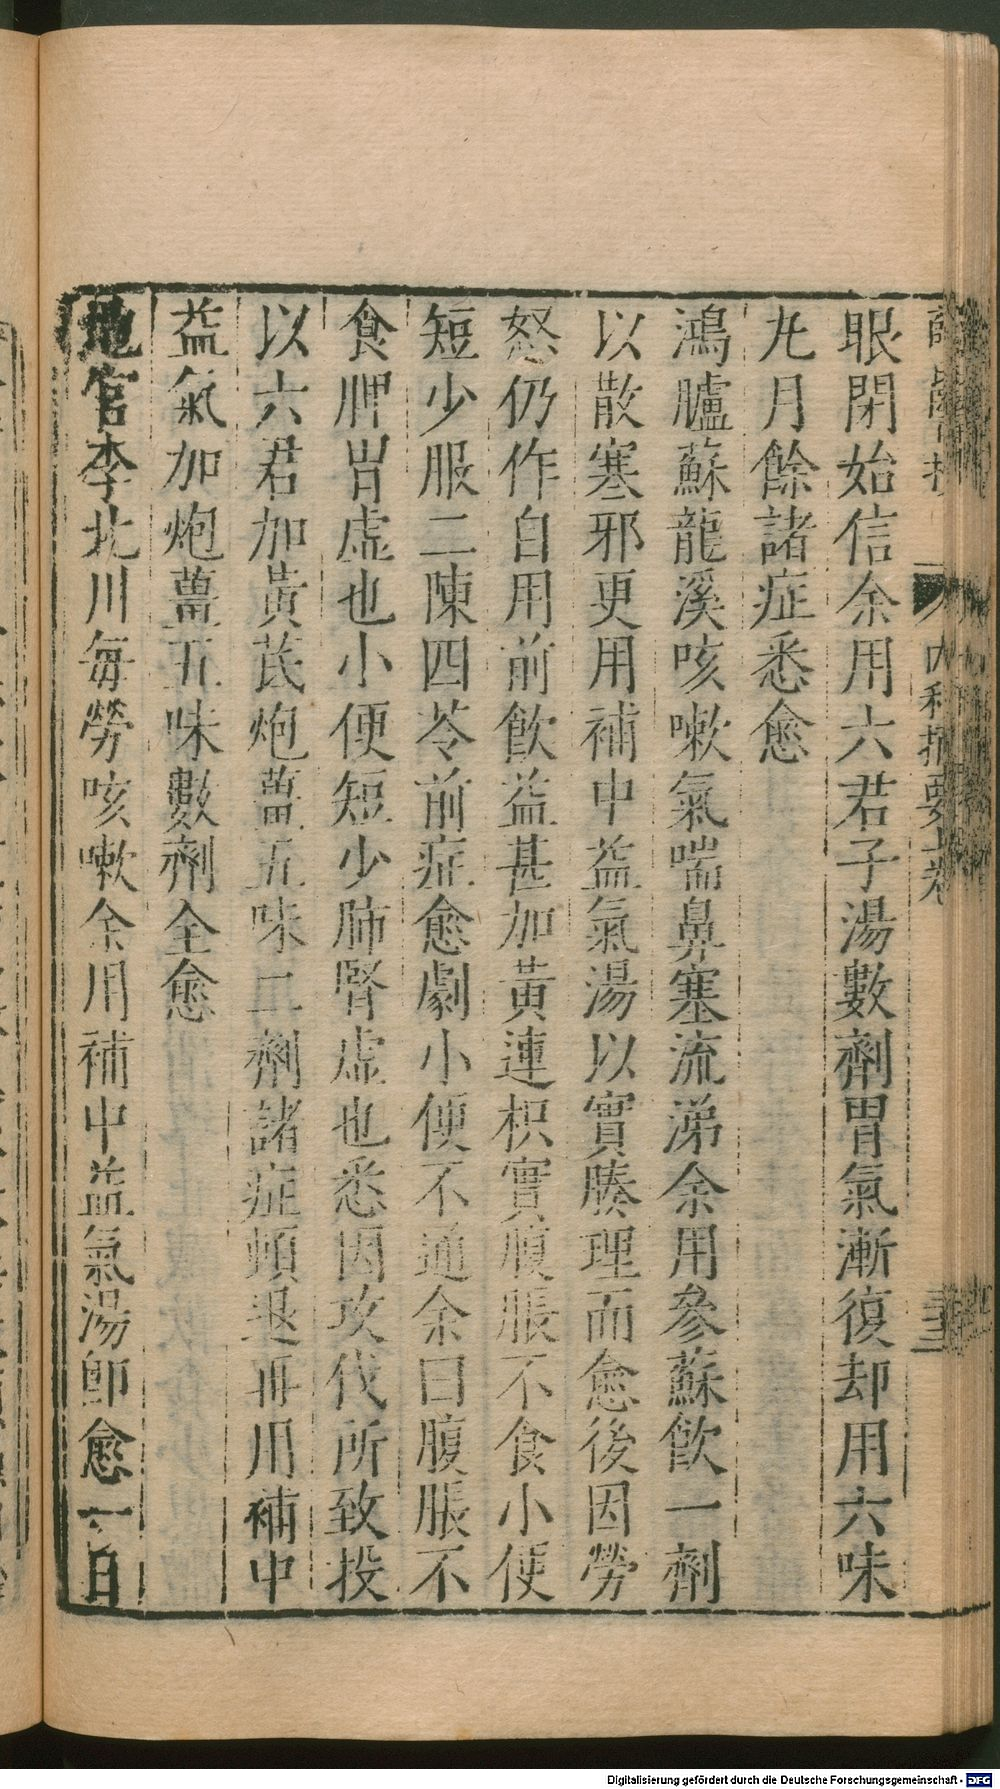 眼閉始信余用六君子湯數劑胃氣漸復却用六味
丸月餘諸症悉愈
鴻臚蘇龍溪咳嗽氣喘鼻塞流涕余用參蘇飲一劑
以散寒邪更用補中益氣湯以實腠理而愈後因勞
怒仍作自用前飲益甚加黃連枳實腹脹不食小便
短少服二陳四苓前症愈劇小便不通余曰腹脹不
食脾胃虛也小便短少肺腎虛也悉因攻伐所致投
以六君加黃芪炮薑五味二劑諸症頓退再用補中
益氣加炮薑五味數劑全愈
地官李北川每勞咳嗽余用補中益氣湯卽愈一日
內科摘要上卷
Digitalisierung gefördert durch die Deutsche Forschungsgemeinschaft - DFG